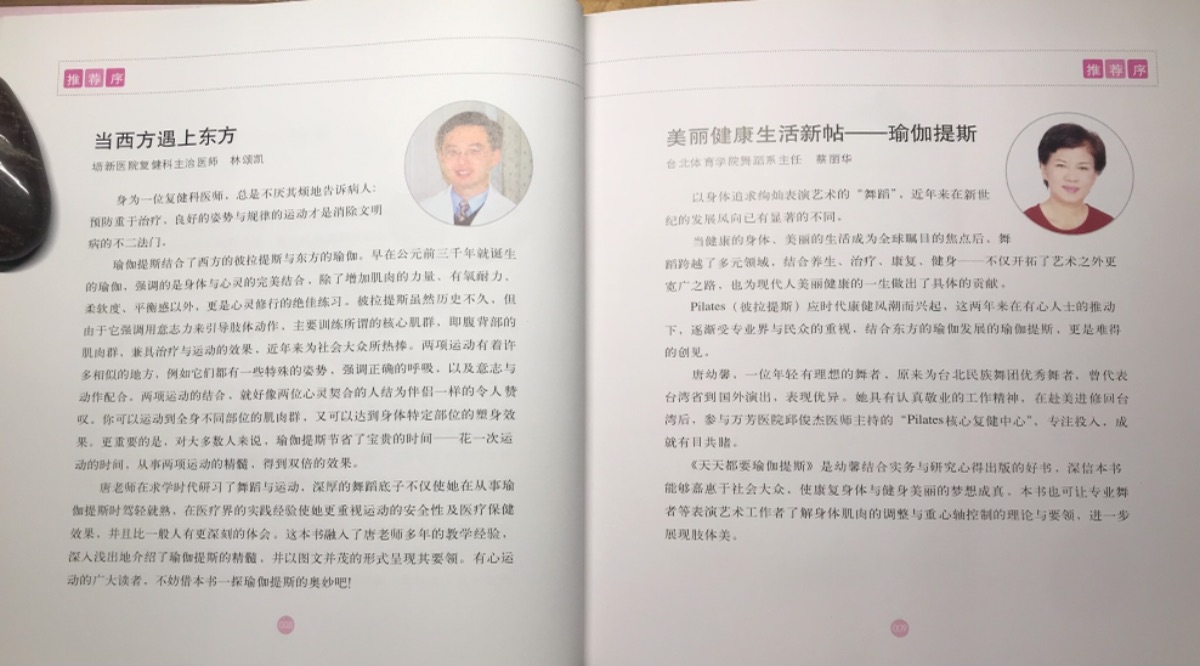 推荐序
当西方遇上东方
培新医院复健科主治医师 林颂凯
身为一位复健科医师，总是不厌其烦地告诉病人：
预防重于治疗，良好的姿势与规律的运动才是消除文明
病的不二法门。
瑜伽提斯结合了西方的彼拉提斯与东方的瑜伽。早在公元前三千年就诞生
的瑜伽，强调的是身体与心灵的完美结合，除了增加肌肉的力量，有氧耐力、
柔软度、平衡感以外，更是心灵修行的绝佳练习。彼拉提斯虽然历史不久，但
由于它强调用意志力来引导肢体动作，主要训练所谓的核心肌群，即腹背部的
肌肉群，兼具治疗与运动的效果，近年来为社会大众所热捧。两项运动有着许
多相似的地方，例如它们都有一些特殊的姿势，强调正确的呼吸，以及意志与
动作配合。两项运动的结合，就好像两位心灵契合的人结为伴侣一样的令人赞
叹。你可以运动到全身不同部位的肌肉群，又可以达到身体特定部位的塑身效
果。更重要的是，对大多数人来说，瑜伽提斯节省了宝贵的时间——花一次运
动的时间，从事两项运动的精髓，得到双倍的效果。
唐老师在求学时代研习了舞蹈与运动，深厚的舞蹈底子不仅使她在从事瑜
伽提斯时驾轻就熟，在医疗界的实践经验使她更重视运动的安全性及医疗保健
效果，并且比一般人有更深刻的体会。这本书融入了唐老师多年的教学经验，
深入浅出地介绍了瑜伽提斯的精髓，并以图文并茂的形式呈现其要领。有心运
动的广大读者，不妨借本书一探瑜伽提斯的奥妙吧!
008
推荐序
美丽健康生活新帖——瑜伽提斯
台北体育学院舞蹈系主任 蔡丽华
以身体追求绚灿表演艺术的“舞蹈”，近年来在新世
纪的发展风向已有显著的不同。
当健康的身体、美丽的生活成为全球瞩目的焦点后，舞
蹈跨越了多元领域，结合养生、治疗、康复、健身——不仅开拓了艺术之外更
宽广之路，也为现代人美丽健康的一生做出了具体的贡献。
Pilates（彼拉提斯）应时代康健风潮而兴起，这两年来在有心人士的推动
下，逐渐受专业界与民众的重视，结合东方的瑜伽发展的瑜伽提斯，更是难得
的创见。
唐幼馨，一位年轻有理想的舞者，原来为台北民族舞团优秀舞者，曾代表
台湾省到国外演出，表现优异。她具有认真敬业的工作精神，在赴美进修回台
湾后，参与万芳医院邱俊杰医师主持的“Pilates核心复健中心”，专注投入，成
就有目共睹。
《天天都要瑜伽提斯》是幼馨结合实务与研究心得出版的好书，深信本书
能够嘉惠于社会大众，使康复身体与健身美丽的梦想成真。本书也可让专业舞
者等表演艺术工作者了解身体肌肉的调整与重心轴控制的理论与要领，进一步
展现肢体美。
009